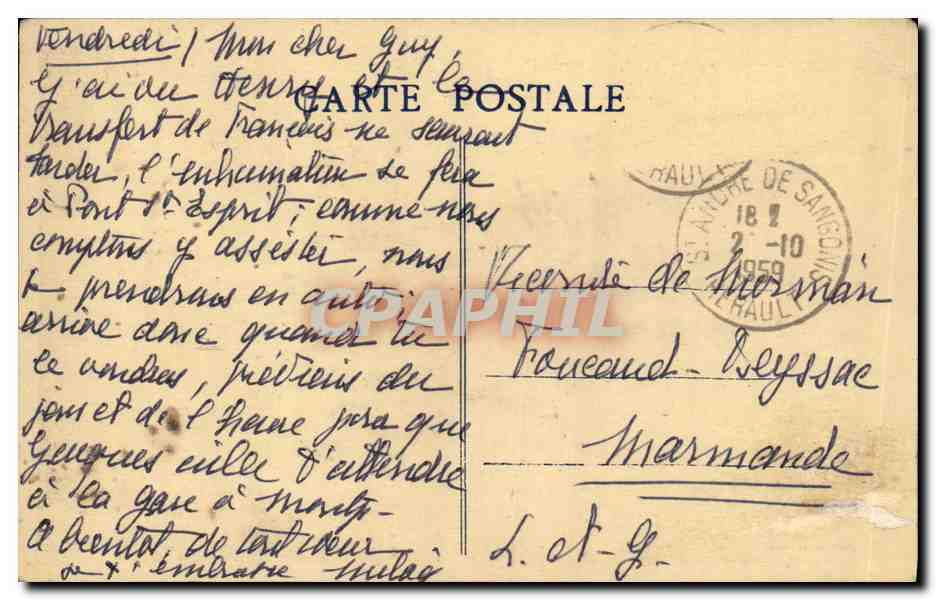 Vendredi / Mon cher Guy,
J'ai vu Henry et le
CARTE POSTALE
Transfert de François ne saurait
tarder, l'inhumation se fera
à Pont St-Esprit; comme nous
comptons y assister, nous
te prendrons en auto;
arrive donc quand tu
le voudras, préviens du
jour et de l'heure pour que
Jacques aille t'attendre
à la gare à Montp-
A bientôt, de tout cœur
je t'embrasse
HERAULT
ST ANDRE DE SANGONIS
18 H
2 -10
1959
HERAULT
Vicomte de Mormán
Foucaud-Deyssac
Marmande
L. et G.
CPAPHIL